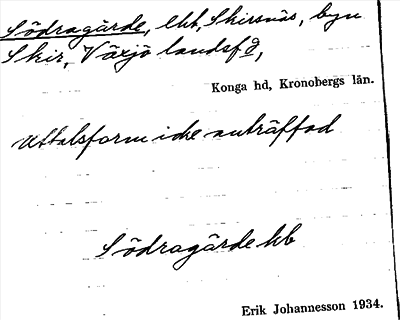 Södragärde, lht, Skirsnäs, byn
Skir, Växjö landsfg,
Konga hd, Kronobergs län.
Uttalsform icke anträffad
Södragärde hb
Erik Johannesson 1934.